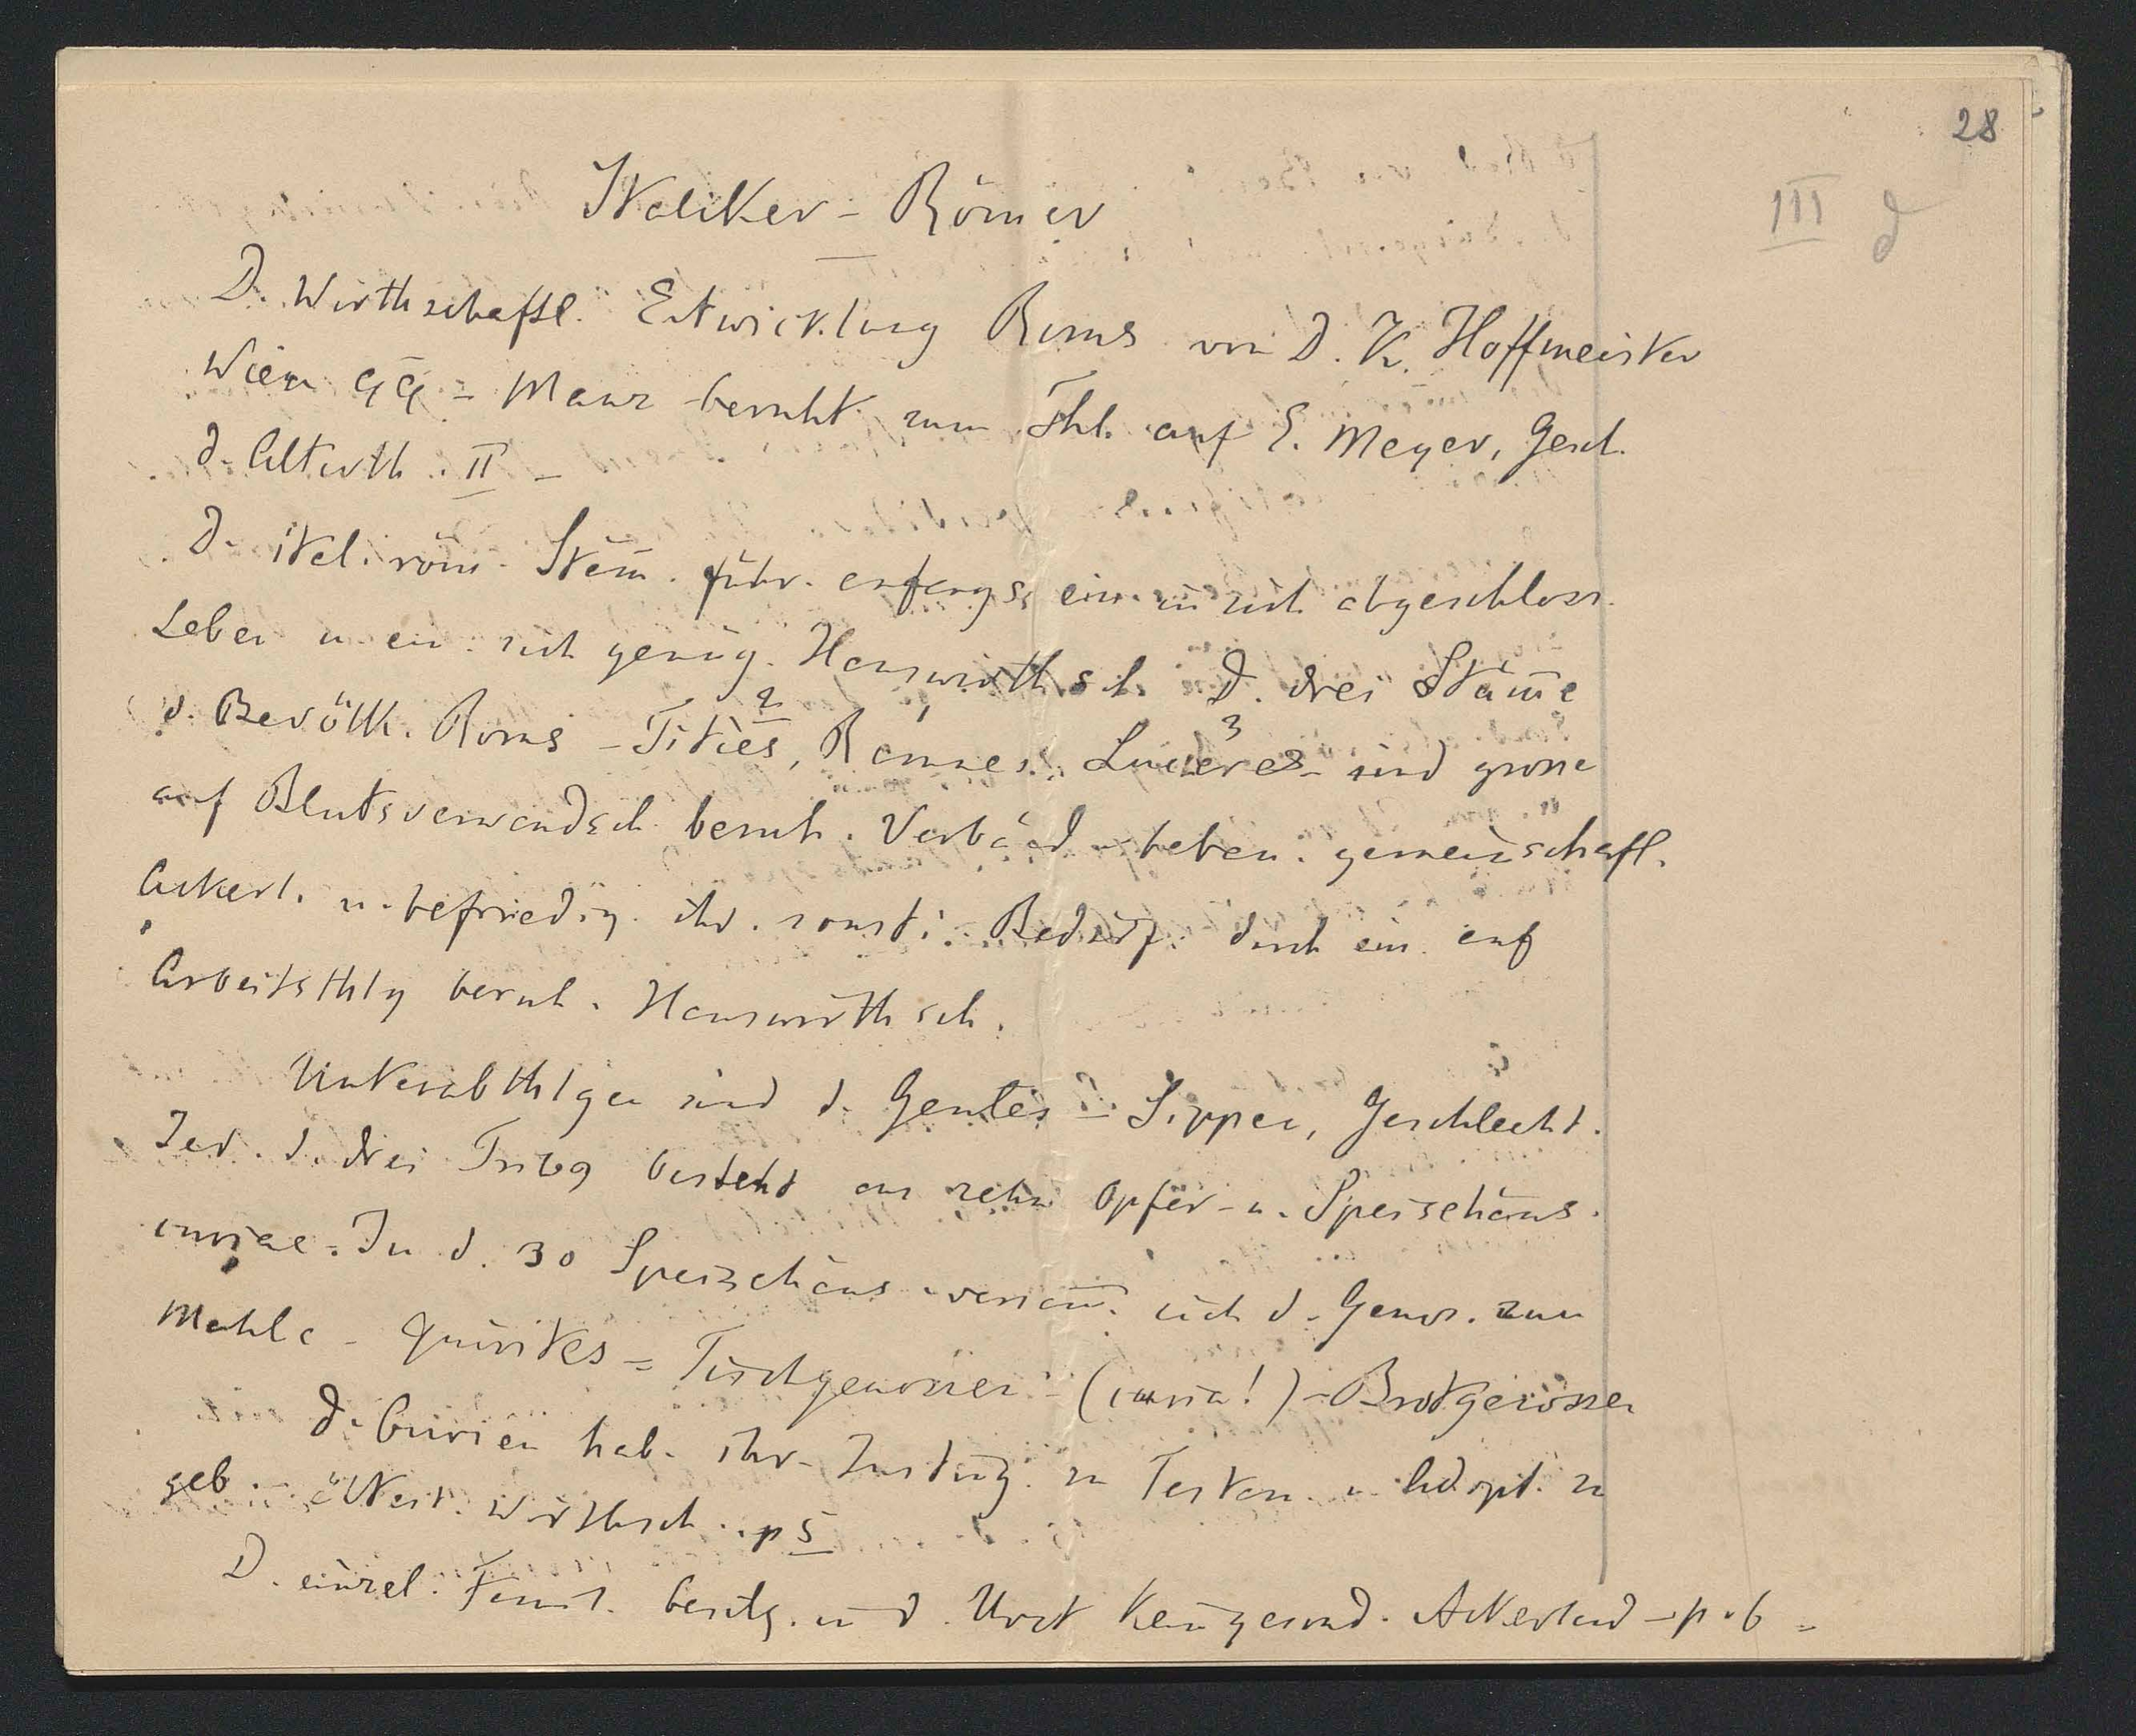 28
III d
Italiker - Römer
D. Wirthschaftl. Entwicklung Roms von D. K. Hoffmeister
Wien 99 - Manz beruht zum Thl. auf E. Meyer, Gesch.
d. Alterth. II -
D. ital. röm. Stäm̄. führ. anfangs ein in sich abgeschloss.
Leben u. ein. sich genüg. Hauswirthsch. D. drei Stäm̄e
d. Bevölk. Roms - Tities 2, Ramnes, Luceres 3 - sind grosse
auf Blutsverwandsch. beruh. Verbänd - haben. gemeinschaftl.
Ackerl. u. befriedig. ihr. sonsti. Bedürf. durch ein. auf
Arbeitsthlg beruh. Hauswirthsch.
Unterabthlgen sind d. Gentes = Sippen, Geschlecht.
Jed. d. drei Tribg besteht aus zehn Opfer- u. Speisehäus.
curiae. In d. 30 Speisehäus. versam̄. sich d. Genos. zum
Mahle - Quirites = Tischgenossen - (curia!) - Brotgenossen
D. Curien hab. ihr. Zustim̄g. zu Testam. u. Adopt. zu
geb. - ältest. Wirthsch. p 5
D. einzel. Faml. besitz. in d. Urzt kein gesond. Ackerland - p. 6 =